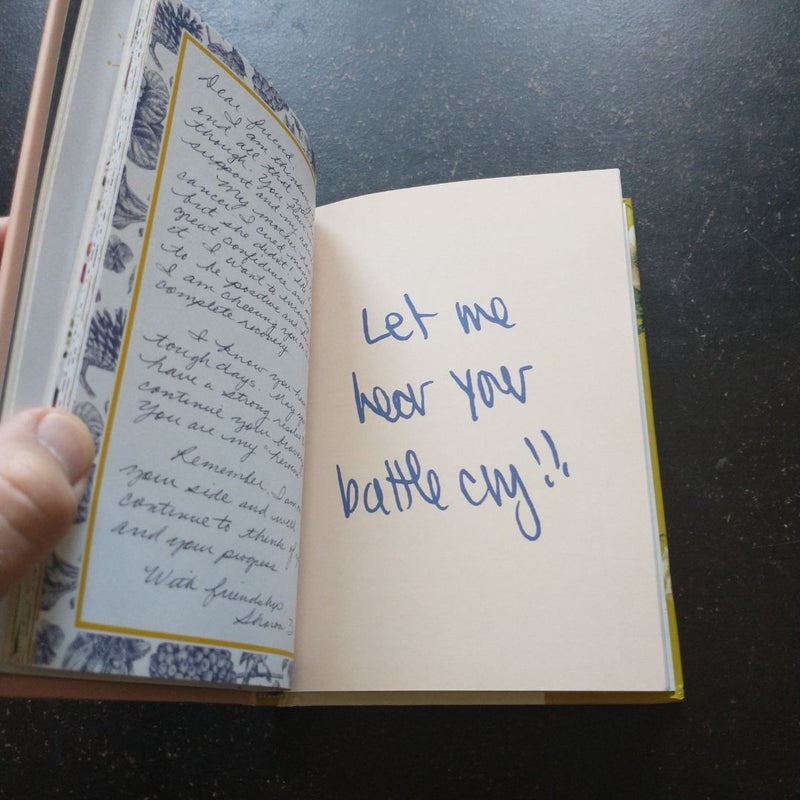 Dear friend
I am thinking
and all that you
though. You have
support and my
My mother
cancer. I cried
but she didn't! She
great confidence and
it. I want to
to be positive and
I am cheering you on
complete recovery
I know you have
tough days. May you
have a strong
continue your
You are my "
Remember, I am
your side and will
continue to think of
and your progress
With friendship
Sharon
Let me
hear your
battle cry!!